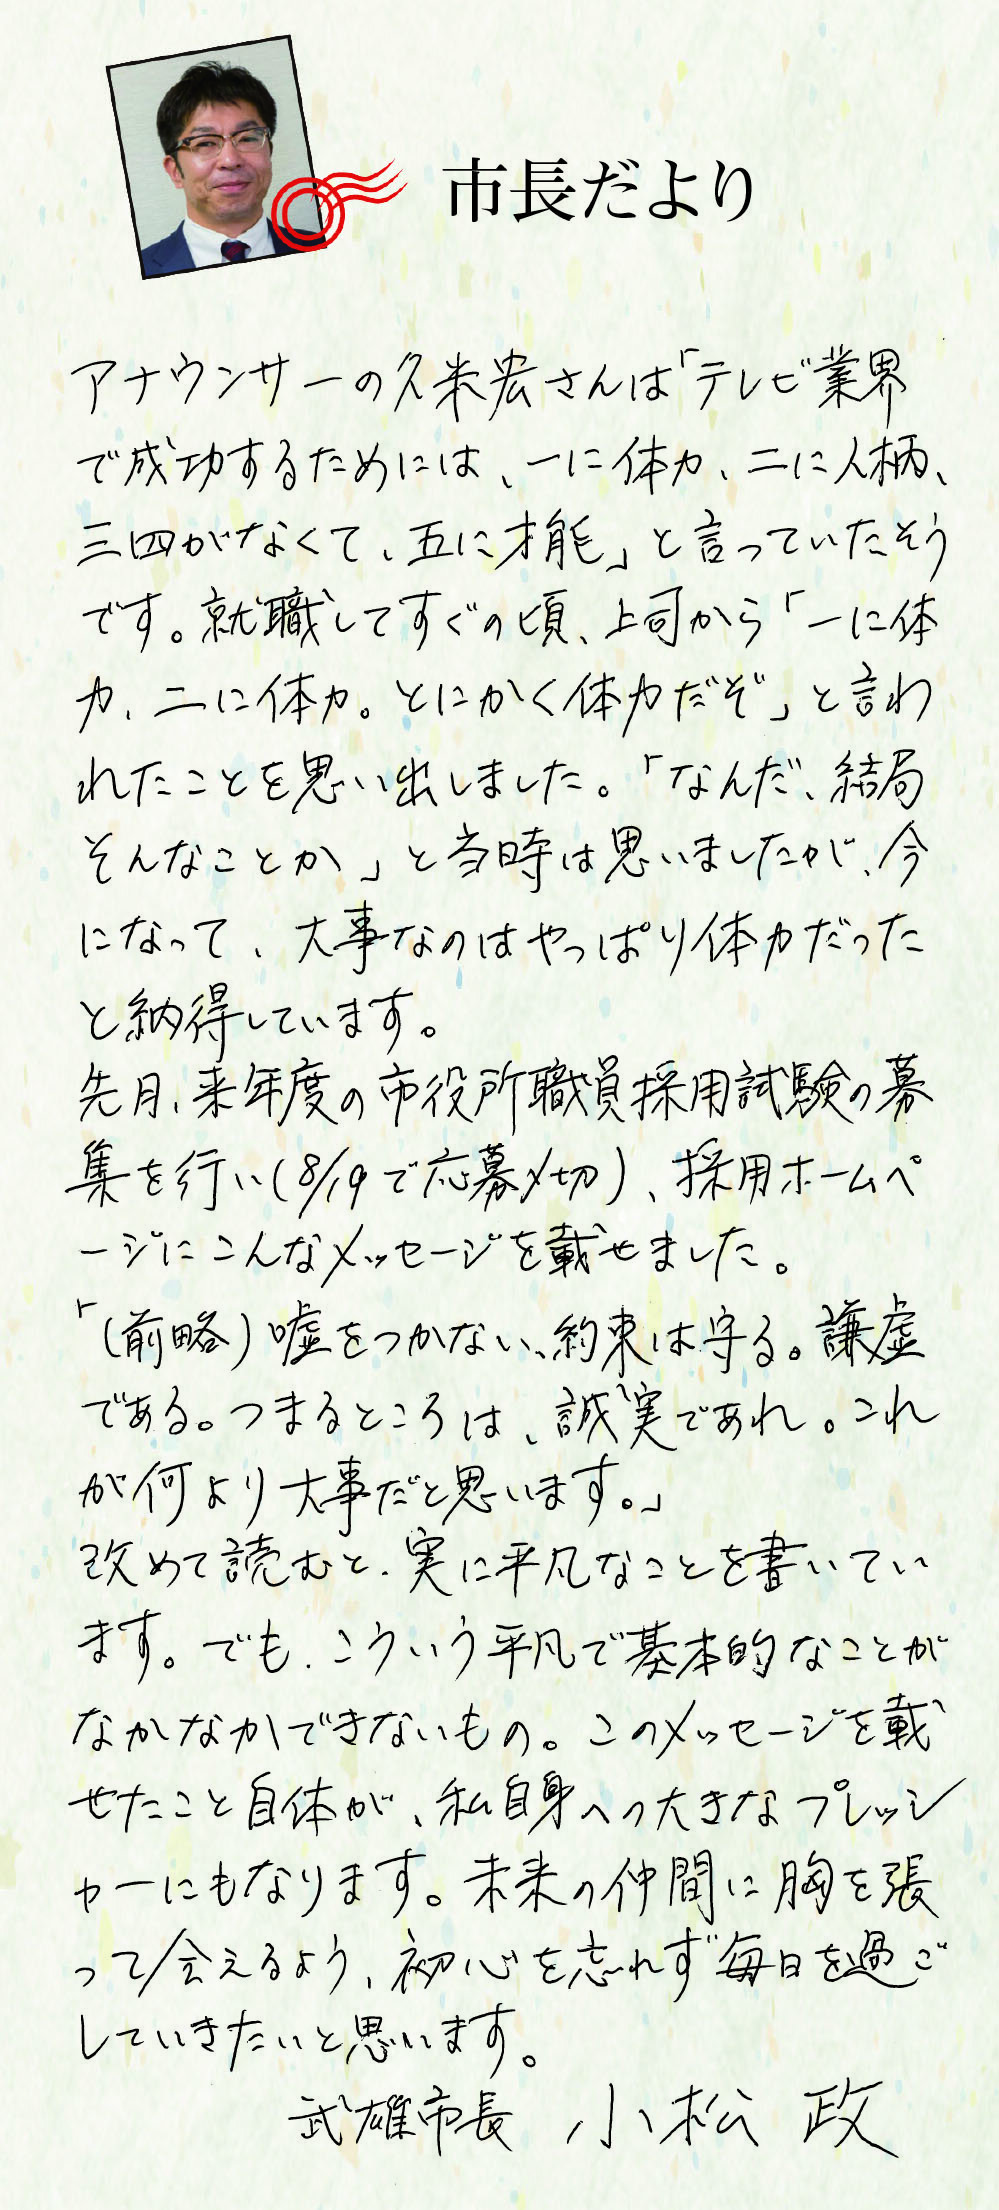 市長だより
アナウンサーの久米宏さんは「テレビ業界
で成功するためには、一に体力、二に人柄、
三四がなくて、五に才能」と言っていたそう
です。就職してすぐの頃、上司から「一に体
力、二に体力。とにかく体力だぞ」と言わ
れたことを思い出しました。「なんだ、結局
そんなことか」と当時は思いましたが、今
になって、大事なのはやっぱり体力だった
と納得しています。
先月、来年度の市役所職員採用試験の募
集を行い(8/19で応募〆切)、採用ホームペ
ージにこんなメッセージを載せました。
「(前略)嘘をつかない、約束は守る。謙虚
である。つまるところは、誠実であれ。これ
が何より大事だと思います。」
改めて読むと、実に平凡なことを書いてい
ます。でも、こういう平凡で基本的なことが
なかなかできないもの。このメッセージを載
せたこと自体が、私自身への大きなプレッシ
ャーにもなります。未来の仲間に胸を張
って会えるよう、初心を忘れず毎日を過ご
していきたいと思います。
武雄市長 小松 政